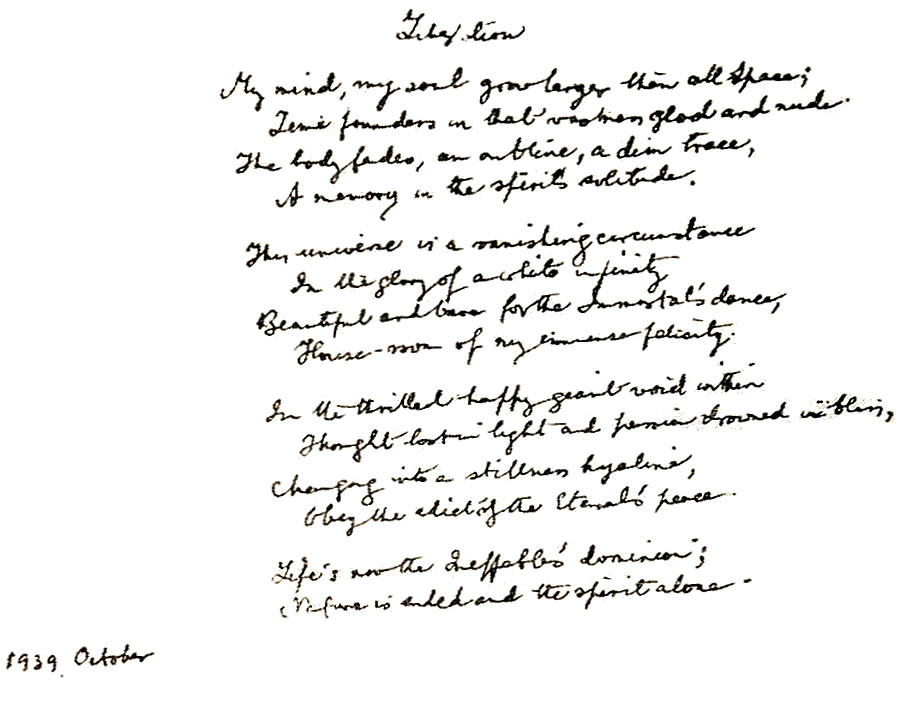 Liberation
My mind, my soul grow larger than all Space;
Time founders in that vastness glad and nude.
The body fades, an outline, a dim trace,
A memory in the spirit's solitude.
This universe is a vanishing circumstance
In the glory of a white infinity
Beautiful and bare for the Immortal's dance,
House-room of my immense felicity.
In the thrilled happy giant void within
Thought lost in light and passion drowned in bliss,
Changing into a stillness hyaline,
Obey the edict of the Eternal's peace.
Life's now the Ineffable's dominion;
Nature is ended and the spirit alone.
1939 October